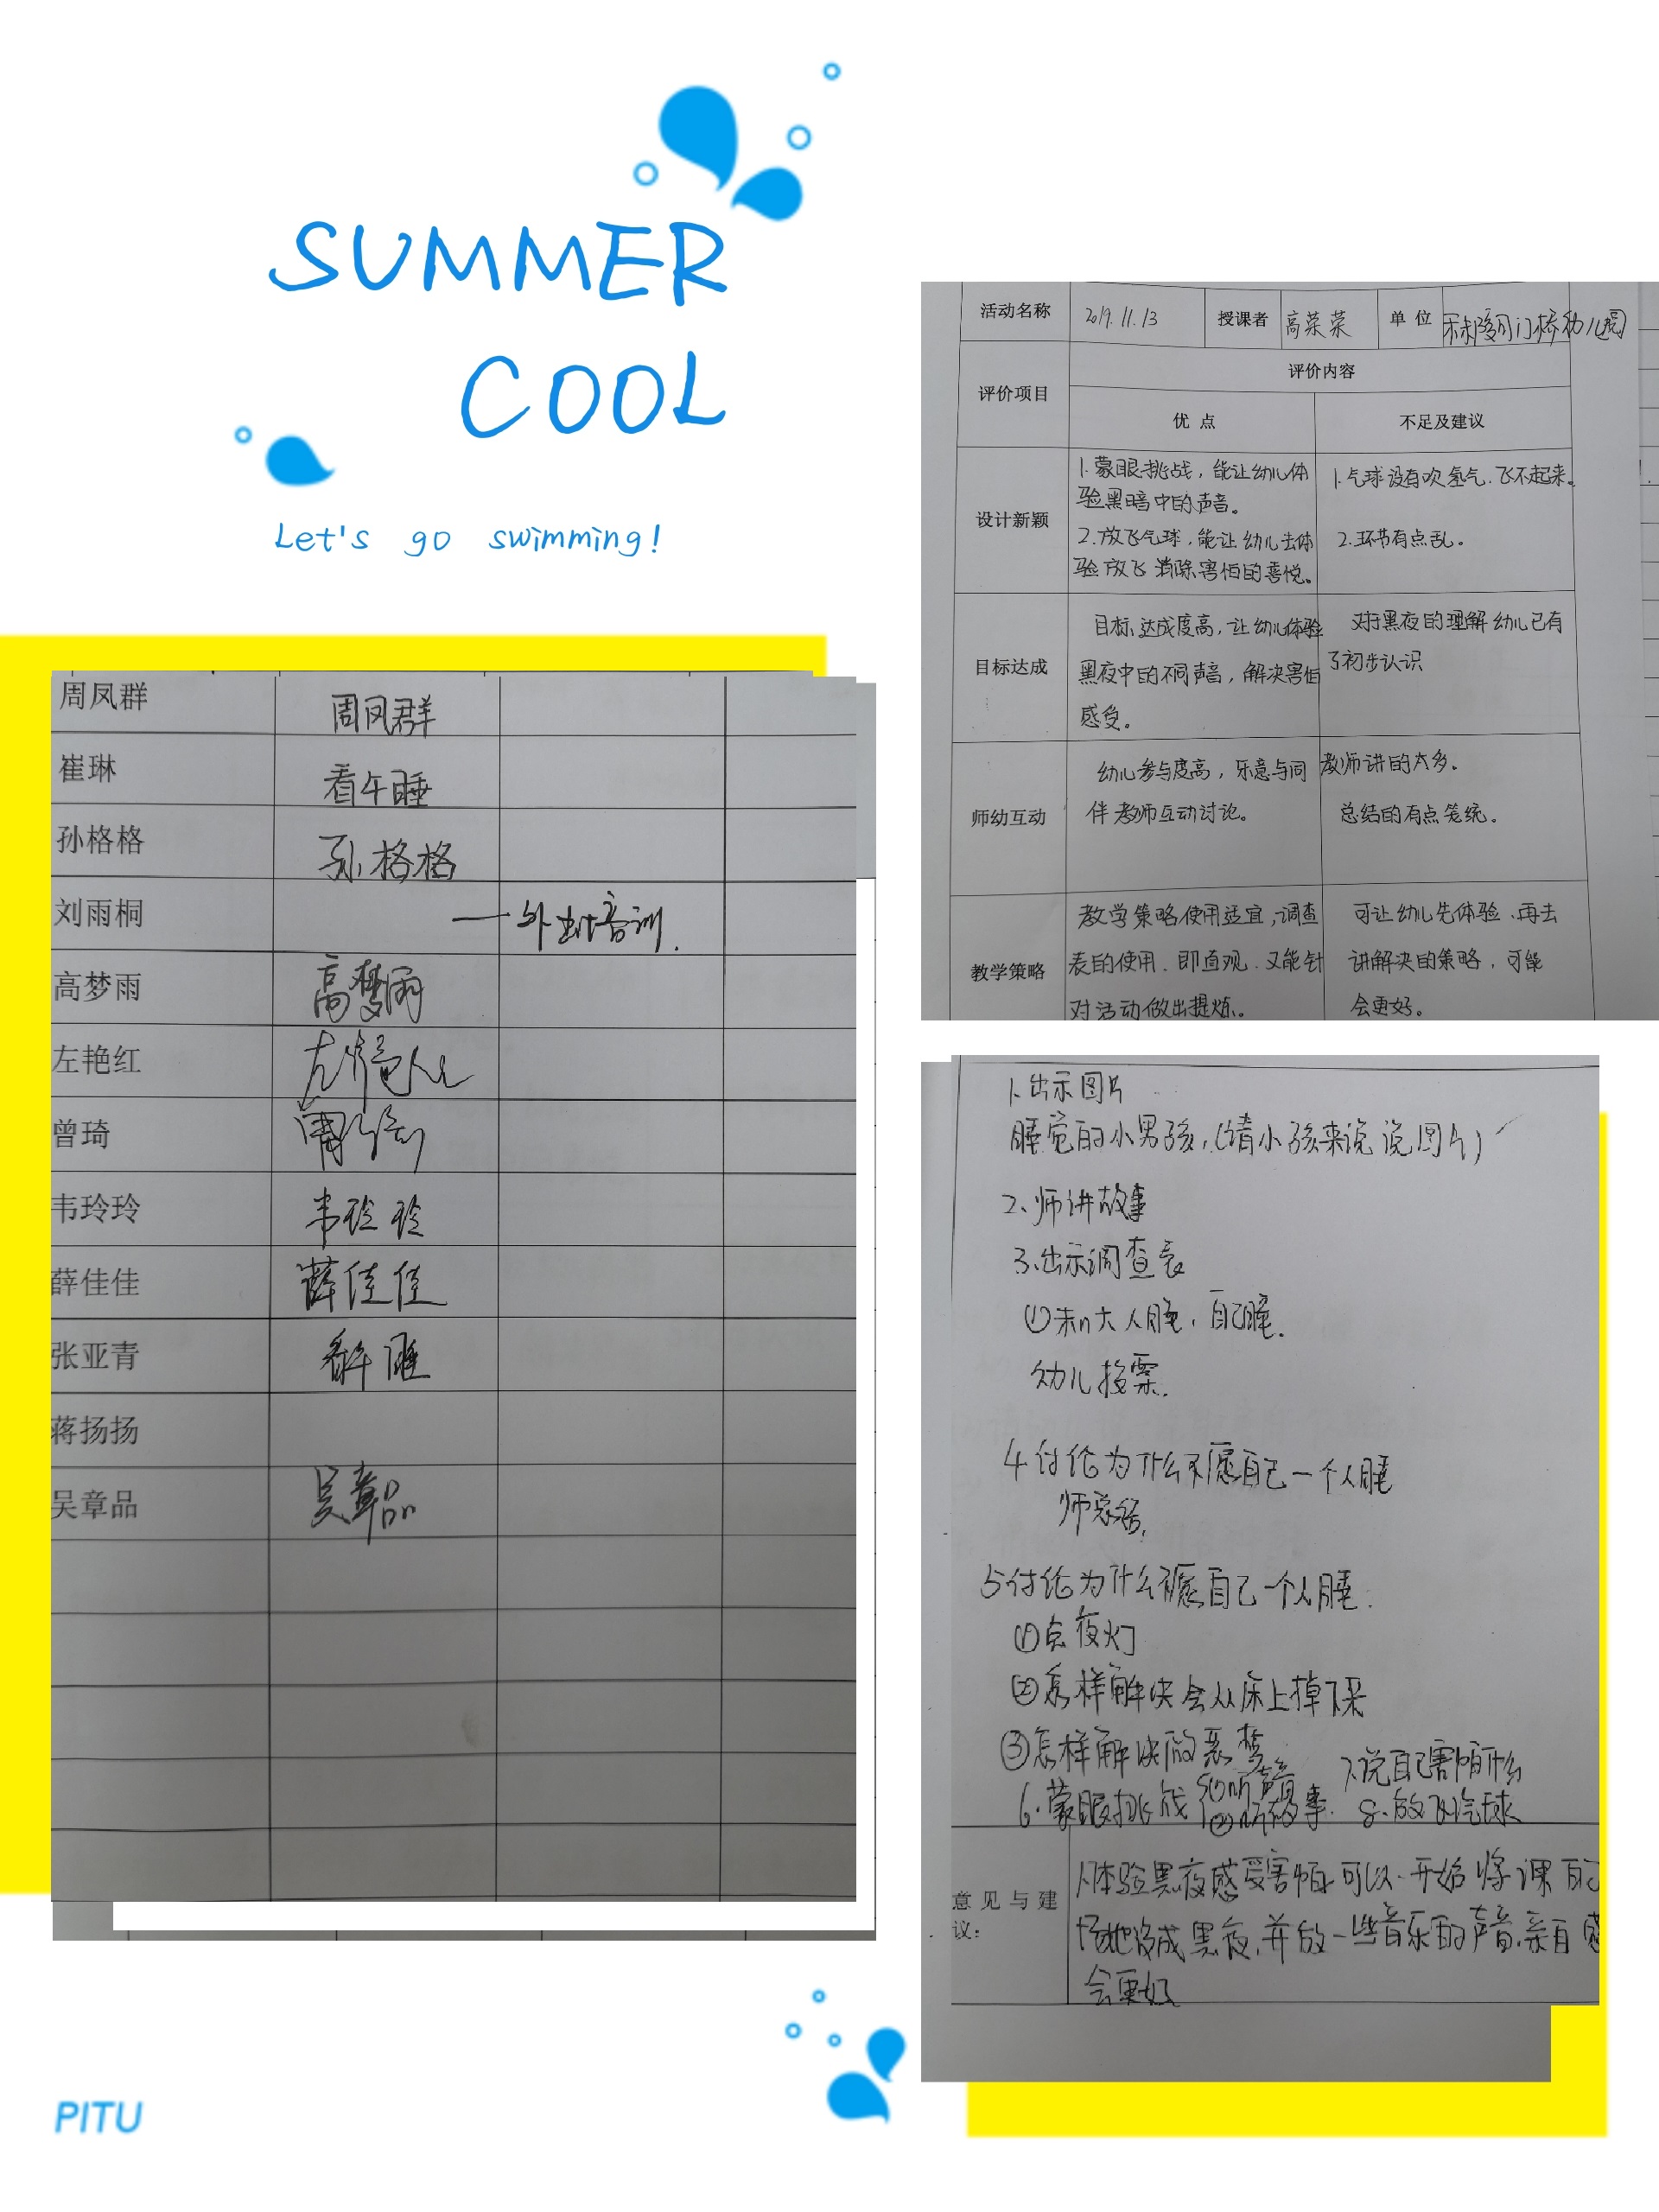 SUMMER
COOL
Let's go swimming!
周凤群 周凤群
崔琳 看午睡
孙格格 孙格格
刘雨桐 —外出培训.
高梦雨 高梦雨
左艳红 左艳红
曾琦
韦玲玲 韦玲玲
薛佳佳 薛佳佳
张亚青 看午睡
蒋扬扬
吴章品 吴章品
活动名称 2019.11.13 授课者 高荣荣 单位 桥幼儿园
评价项目 评价内容
优点 不足及建议
设计新颖
1.蒙眼挑战，能让幼儿体
验黑暗中的声音。
2.放飞气球，能让幼儿去体
验放飞消除害怕的喜悦。
1.气球没有吹氢气.飞不起来。
2.环节有点乱。
目标达成
目标达成度高，让幼儿体验
黑夜中的不同声音，解决害怕
感受。
对于黑夜的理解幼儿已有
了初步认识
师幼互动
幼儿参与度高，乐意与同
伴教师互动讨论。
教师讲的太多。
总结的有点笼统。
教学策略
教学策略使用适宜，调查
表的使用.即直观.又能针
对活动做出提炼。
可让幼儿先体验.再去
讲解决的策略，可能
会更好。
1.出示图片
睡觉的小男孩，(请小孩来说说图片)
2、师讲故事
3、出示调查表
①和大人睡，自己睡.
幼儿投票.
4.讨论为什么不愿自己一个人睡
师总结.
5讨论为什么不愿自己一个人睡.
①点夜灯
②怎样解决会从床上掉下来
③怎样解决做恶梦
6.蒙眼挑战 ①听声音
②听故事.
7.说自己害怕什么
8.放飞汽球
意见与建
议：
1.体验黑夜感受害怕可以一开始将课的
场地设成黑夜,并放一些音乐的声音,亲自感
会更好
PITU